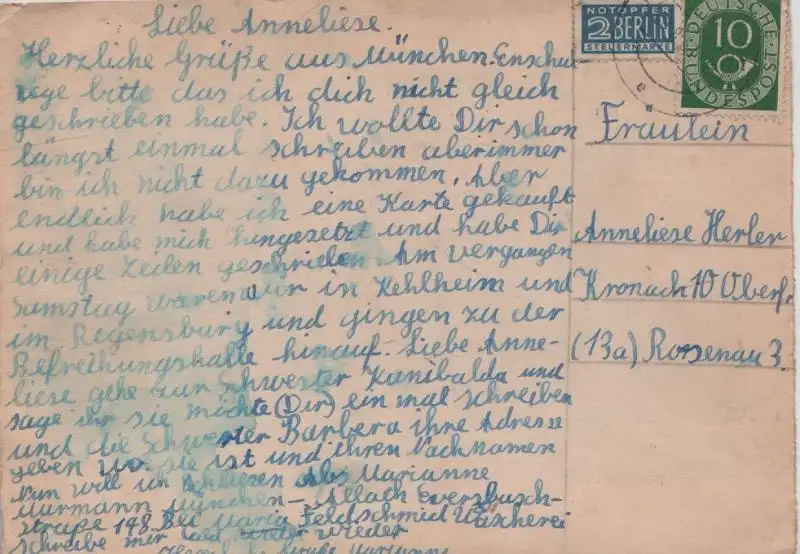 Liebe Anneliese.
Herzliche Grüße aus München. Enschul
rege bitte das ich dich nicht gleich
geschrieben habe. Ich wollte Dir schon
längst einmal schreiben aberimmer
bin ich nicht dazu gekommen. Aber
endlich habe ich eine Karte gekauft
und habe mich hingezetzt und habe Dir
einige Zeilen geschrieben. Am vergangen
Samstag waren wir in Kehlheim und
im Regensburg und gingen zu der
Befreihungshalle hinauf. Liebe Anne-
liese gehe zur Schwester Kanibalda und
sage ihr sie möchte (Dir) ein mal schreiben
und die Schwester Barbera ihre Adresse
geben wo sie ist und ihren Nachnamen
Nun will ich schliesen Abs Marianne
Murmann München - Allach Everzbusch-
straße 148. Bei Maria Feldschmid Wäscherei
schreibe mir bald wieder
Grüße Marianne
NOTOPFER
2 BERLIN
STEUERMARKE
DEUTSCHE
BUNDESPOST
10
Fräulein
Anneliese Herler
Kronach 10 Oberf.
(13a) Rosenau 3.